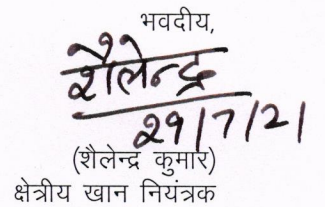 भवदीय,
शैलेन्द्र
29/7/21
(शैलेन्द्र कुमार)
क्षेत्रीय खान नियंत्रक